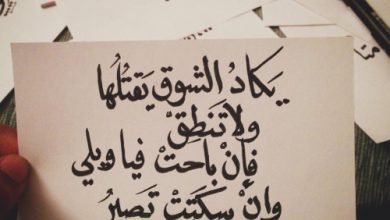 يَكَادُ الشوق يَقتُلُها
ولا تَنطِقْ
فإنْ بَاحتْ فيا ويلي
وإنْ سكتَتْ تَصيرُ